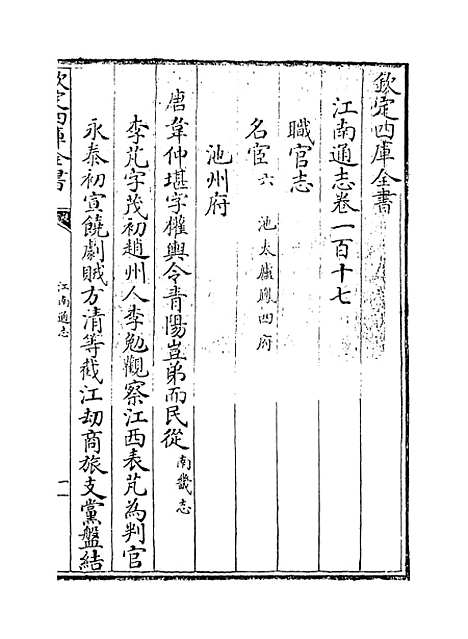 欽定四庫全書
江南通志卷一百十七
職官志
名宦六 池太廬鳳四府
池州府
唐韋仲堪字權輿令青陽豈弟而民從南畿志
李芃字茂初趙州人李勉觀察江西表芃為判官
永泰初宣饒劇賊方清等截江劫商旅支黨盤結
欽定四庫全書
江南通志
一